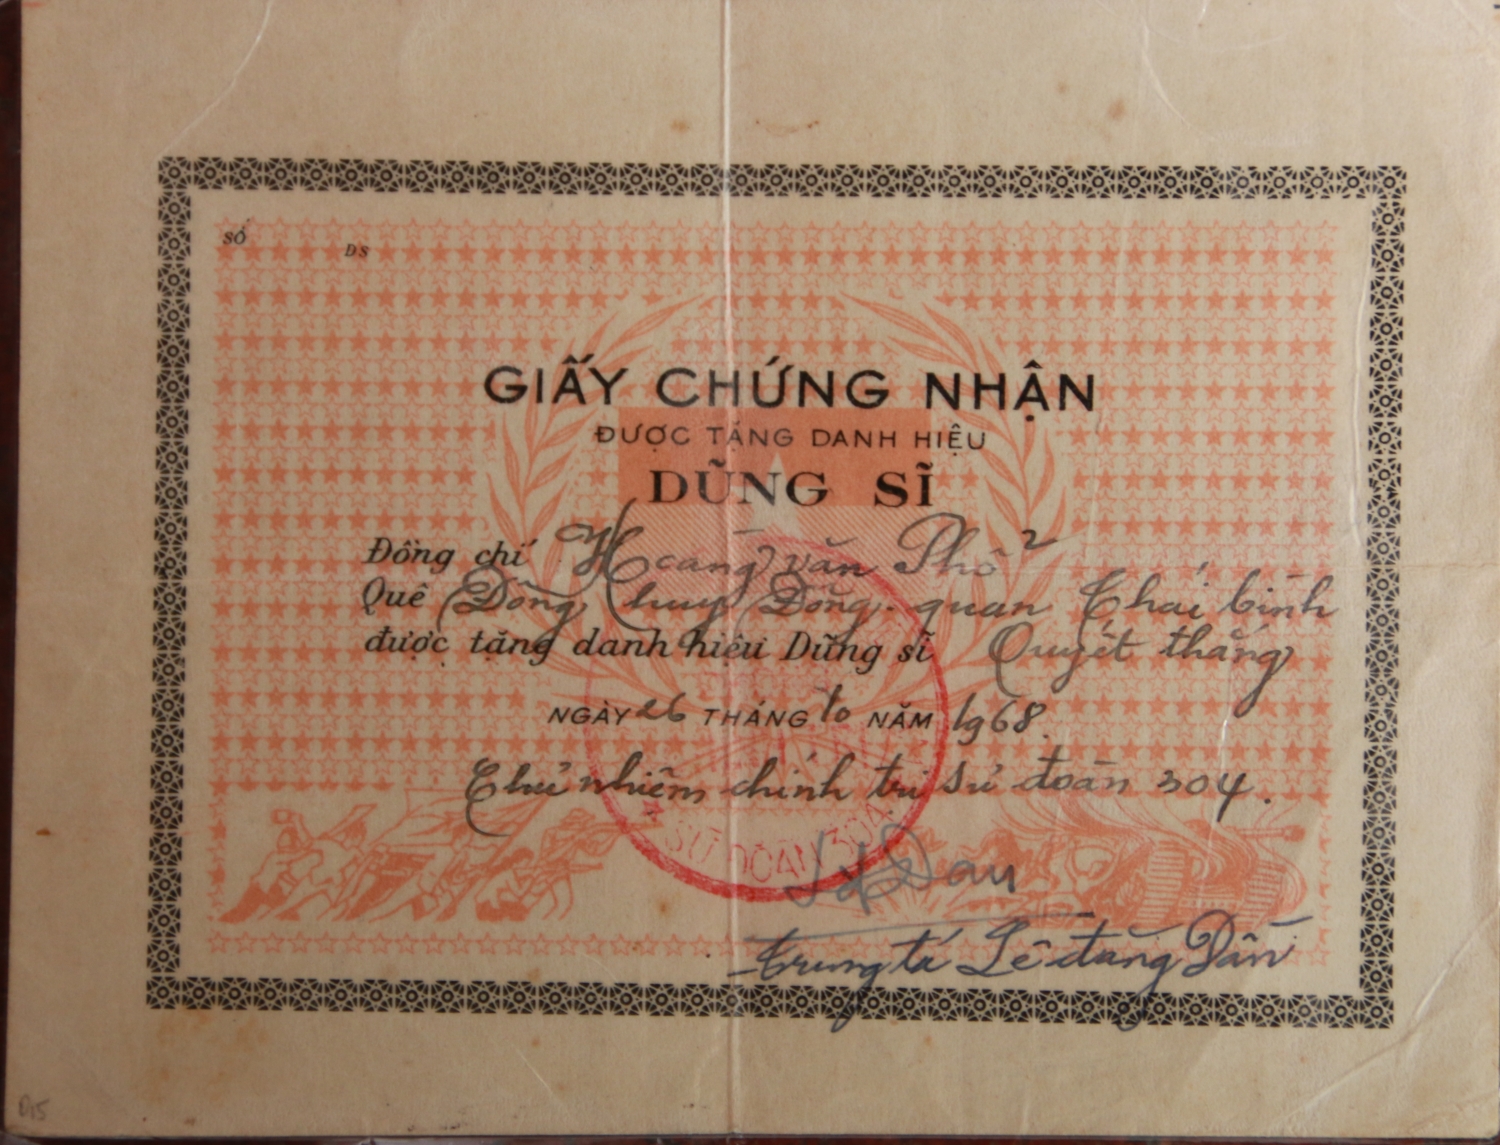 SỐ
DS
GIẤY CHỨNG NHẬN
ĐƯỢC TẶNG DANH HIỆU
DŨNG SĨ
Đồng chí Hoàng văn Phổ
Quê Đông huy Đông quan Thái bình
được tặng danh hiệu Dũng sĩ Quyết thắng
NGÀY 26 THÁNG 10 NĂM 1968.
Chủ nhiệm chính trị sư đoàn 304.
SƯ ĐOÀN 304
Trung tá Lê đăng Dần
D15